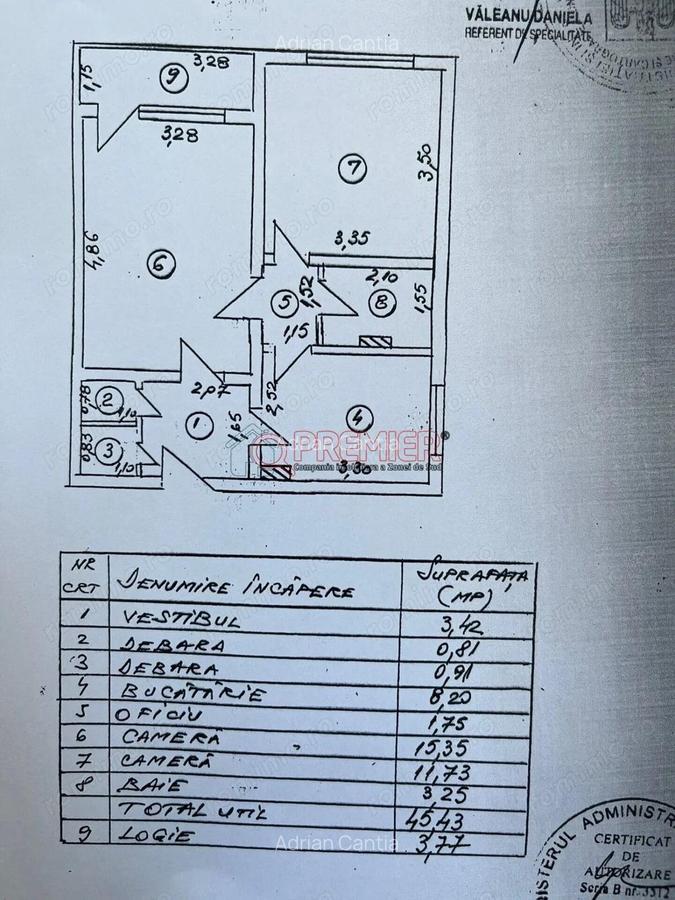 VĂLEANU DANIELA
REFERENT DE SPECIALITATE
Adrian Cantia
romimo.ro
9
3,28
1,15
3,28
7
3,50
3,35
4,86
6
5
1,52
2,10
8
1,55
1,15
2,07
2,52
0,78
2
1,10
1
1,65
4
0,83
3
1,10
3,30
PREMIER®
Compania imobiliara a Zonei de Sud
Adrian Cantia
NR CRT DENUMIRE ÎNCĂPERE SUPRAFAȚA (MP)
1 VESTIBUL 3,42
2 DEBARA 0,81
3 DEBARA 0,91
4 BUCĂTĂRIE 8,20
5 OFICIU 1,75
6 CAMERĂ 15,35
7 CAMERĂ 11,73
8 BAIE 3,25
TOTAL UTIL 45,43
9 LOGIE 3,77
Adrian Cantia
CERTIFICAT
DE
AUTORIZARE
Seria B nr. 3512